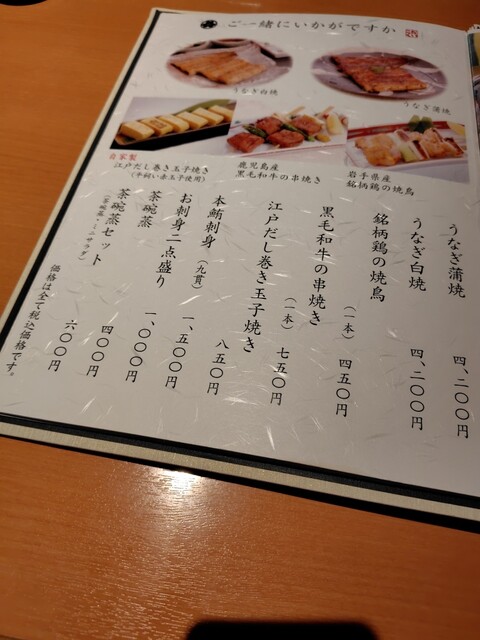 ご一緒にいかがですか
うなぎ白焼
うなぎ蒲焼
自家製
江戸だし巻き玉子焼き
(平飼い赤玉子使用)
鹿児島産
黒毛和牛の串焼き
岩手県産
銘柄鶏の焼鳥
うなぎ蒲焼 四、二〇〇円
うなぎ白焼 四、二〇〇円
銘柄鶏の焼鳥 (一本) 四五〇円
黒毛和牛の串焼き (一本) 七五〇円
江戸だし巻き玉子焼き 八五〇円
本鮪刺身 (九貫) 一、五〇〇円
お刺身二点盛り 一、〇〇〇円
茶碗蒸 四〇〇円
茶碗蒸セット (茶碗蒸・ミニサラダ) 六〇〇円
価格は全て税込価格です。